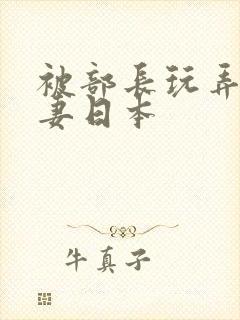 被部長玩弄
妻日本
牛真子